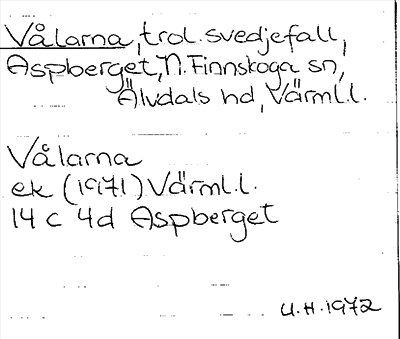 Vålarna, trol. svedjefall,
Aspberget, N. Finnskoga sn,
Älvdals hd, Värml.l.
Vålarna
ek (1971) Värml.l.
14 c 4d Aspberget
U.H. 1972